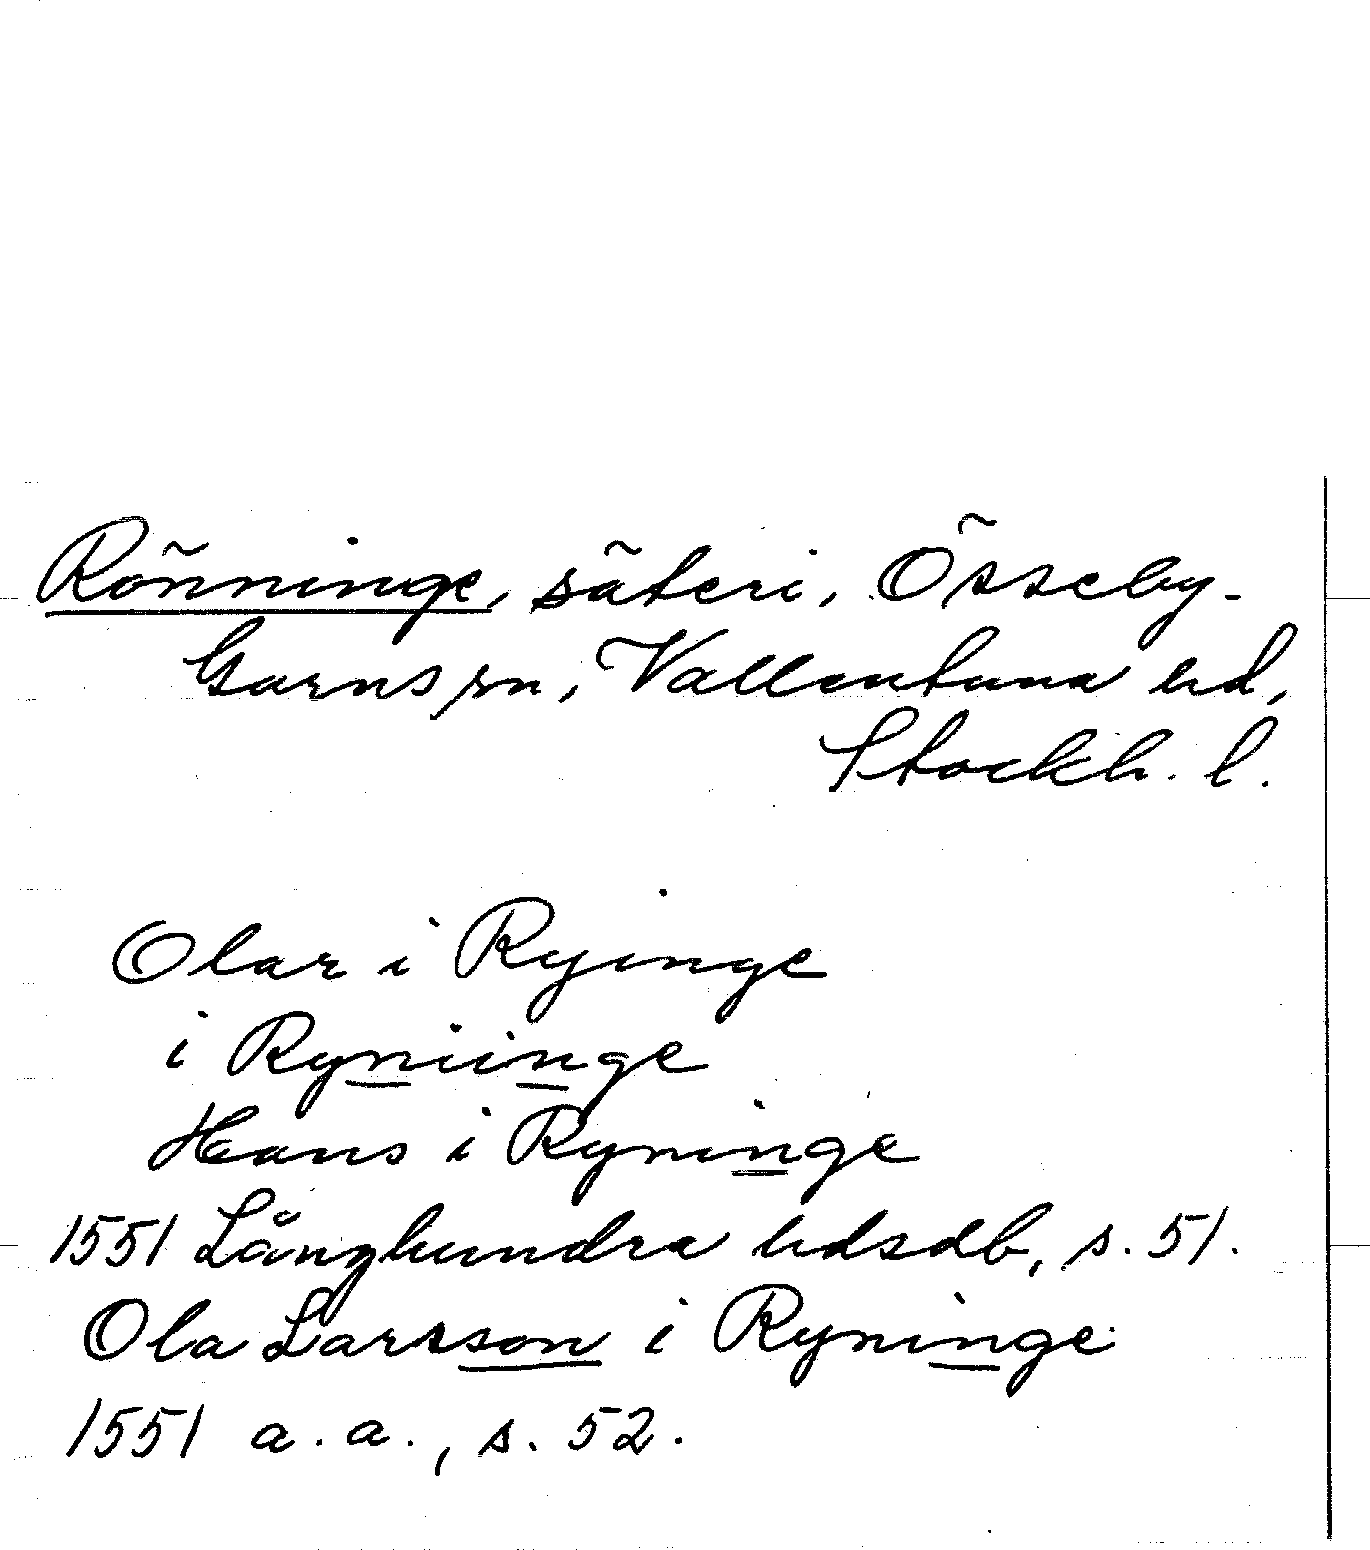 Rönninge, säteri, Össeby-
Garns sn, Vallentuna hd,
Stockh. l.
Olar i Ryinge
i Ryniinge
Hans i Ryninge
1551 Långhundra hdsdb, s. 51.
Ola Larsson i Ryninge
1551 a. a., s. 52.